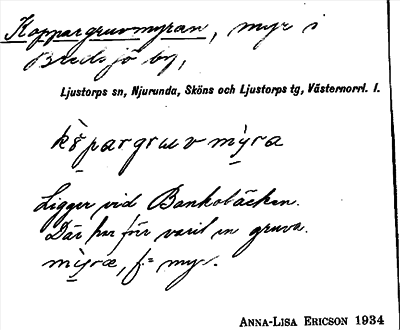 Koppargruvmyran, myr i
Bredsjö by,
Ljustorps sn, Njurunda, Sköns och Ljustorps tg, Västernorrl. l.
gruv myra
Ligger vid Bankobäcken.
Där har förr varit en gruva.
myra, f = myr.
ANNA-LISA ERICSON 1934